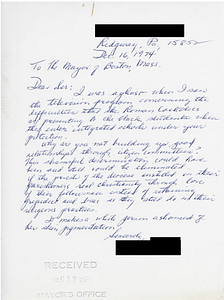 Ridgway, Pa. 15853
Dec 16, 1974.
To the Mayor of Boston, Mass.
Dear Sir:
I was aghast when I saw
the television program concerning the
difficulties that the Roman Catholics
are presenting to the black students when
they enter integrated schools under your
jurisdiction.
Why are you not building up good
relationships through citizen committees?
This shameful determination could have
been and still could be eliminated
if the priests of the diocese insisted on their
parishioners real christianity through love
of their fellowmen instead of withering
prejudice and
religious practice.
It makes a white person ashamed of
her skin pigmentation!
Sincerely,
RECEIVED
MAYOR'S OFFICE